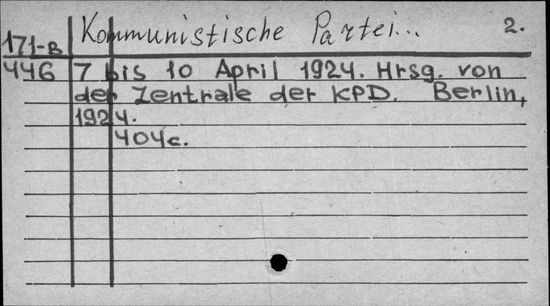 Kommunistische Partei... 2.
171-B
446 7 bis 10 April 1924. Hrsg. von
der Zentrale der KPD. Berlin,
1924.
404c.